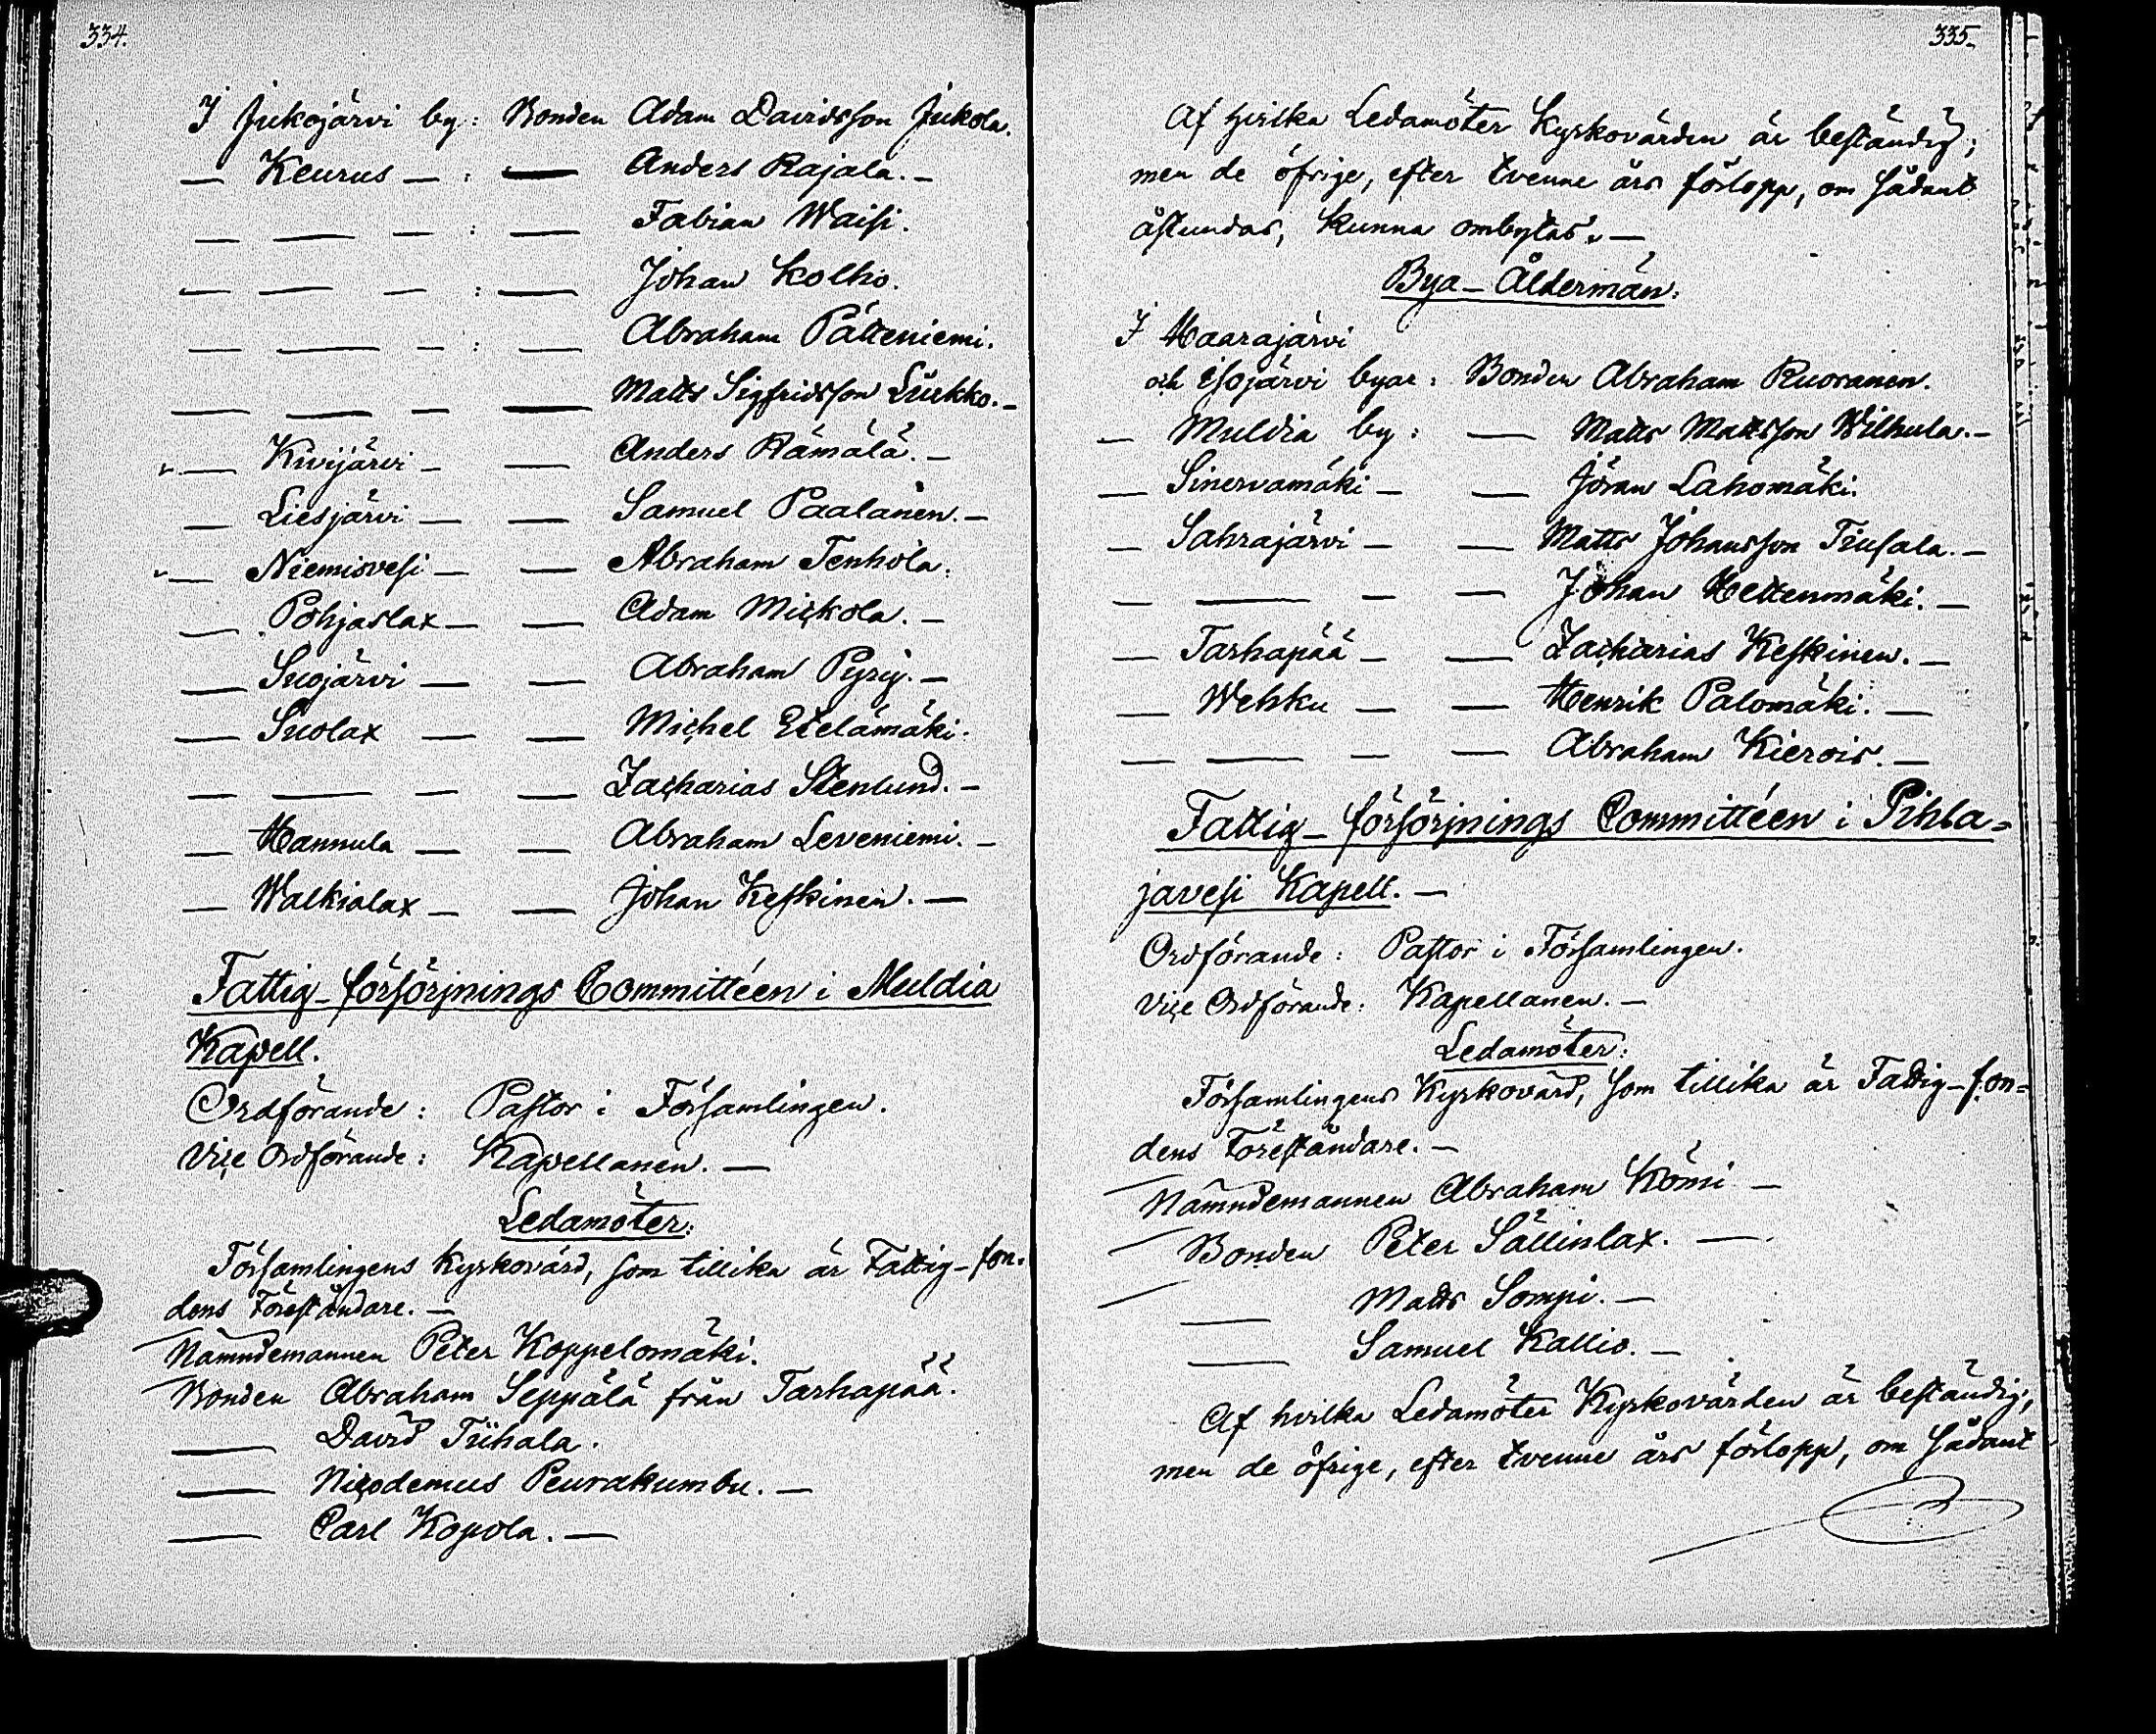 334.
I Jukojärvi by: Bonden Adam Davidsson Jukola.
— Keurus — : — Anders Rajala. —
— — — : — Fabian Waisi.
— — — : — Johan Kolho.
— — — : — Abraham Pätteniemi.
— — — — Matts Sigfridsson Liukko. —
— Kivijärvi — — Anders Rämälä. —
— Liesjärvi — — Samuel Paalanen. —
— Niemisvesi — — Abraham Tenhola.
— Pohjaslax — — Adam Mickola. —
— Suojärvi — — Abraham Pyrij. —
— Suolax — — Michel Etelämäki.
— — — — Zacharias Stenlund. —
— Hannula — — Abraham Leveniemi. —
— Walkialax — — Johan Keskinen. —
Fattig-försörjnings Committéen i Muldia
Kapell.
Ordförande: Pastor i Församlingen.
Vice Ordförande: Kapellanen. —
Ledamöter:
Församlingens Kyrkovärd, som tillika är Fattig-fon-
dens Föreståndare. —
Nämndemannen Peter Koppelomäki.
Bonden Abraham Seppälä från Tarhapää.
— David Tiihala.
— Nicodemus Peurakumbu. —
— Carl Kopola. —
335.
Af hvilka Ledamöter Kyrkovärden är beständig;
men de öfrige, efter tvenne års förlopp, om sådant
åstundas, kunna ombytas. —
Bya-Åldermän:
I Haarajärvi
och Isojärvi byar: Bonden Abraham Ruoranen.
— Muldia by: — Matts Mattsson Wilhula. —
— Sinervamäki — — Jöran Lahomäki.
— Sahrajärvi — — Matts Johansson Tiusala. —
— — — — Johan Hettenmäki. —
— Tarhapää — — Zacharias Keskinen. —
— Wehku — — Henrik Palomäki. —
— — — — Abraham Kierois. —
Fattig-försörjnings Committéen i Pihla=
javesi Kapell. —
Ordförande: Pastor i Församlingen.
Vice Ordförande: Kapellanen. —
Ledamöter:
Församlingens Kyrkovärd, som tillika är Fattig-fon=
dens Föreståndare. —
Nämndemannen Abraham Kömi —
Bonden Peter Sällinlax. —
— Matts Sompi. —
— Samuel Kallio. —
Af hvilka Ledamöter Kyrkovärden är beständig;
men de öfrige, efter tvenne års förlopp, om sådant